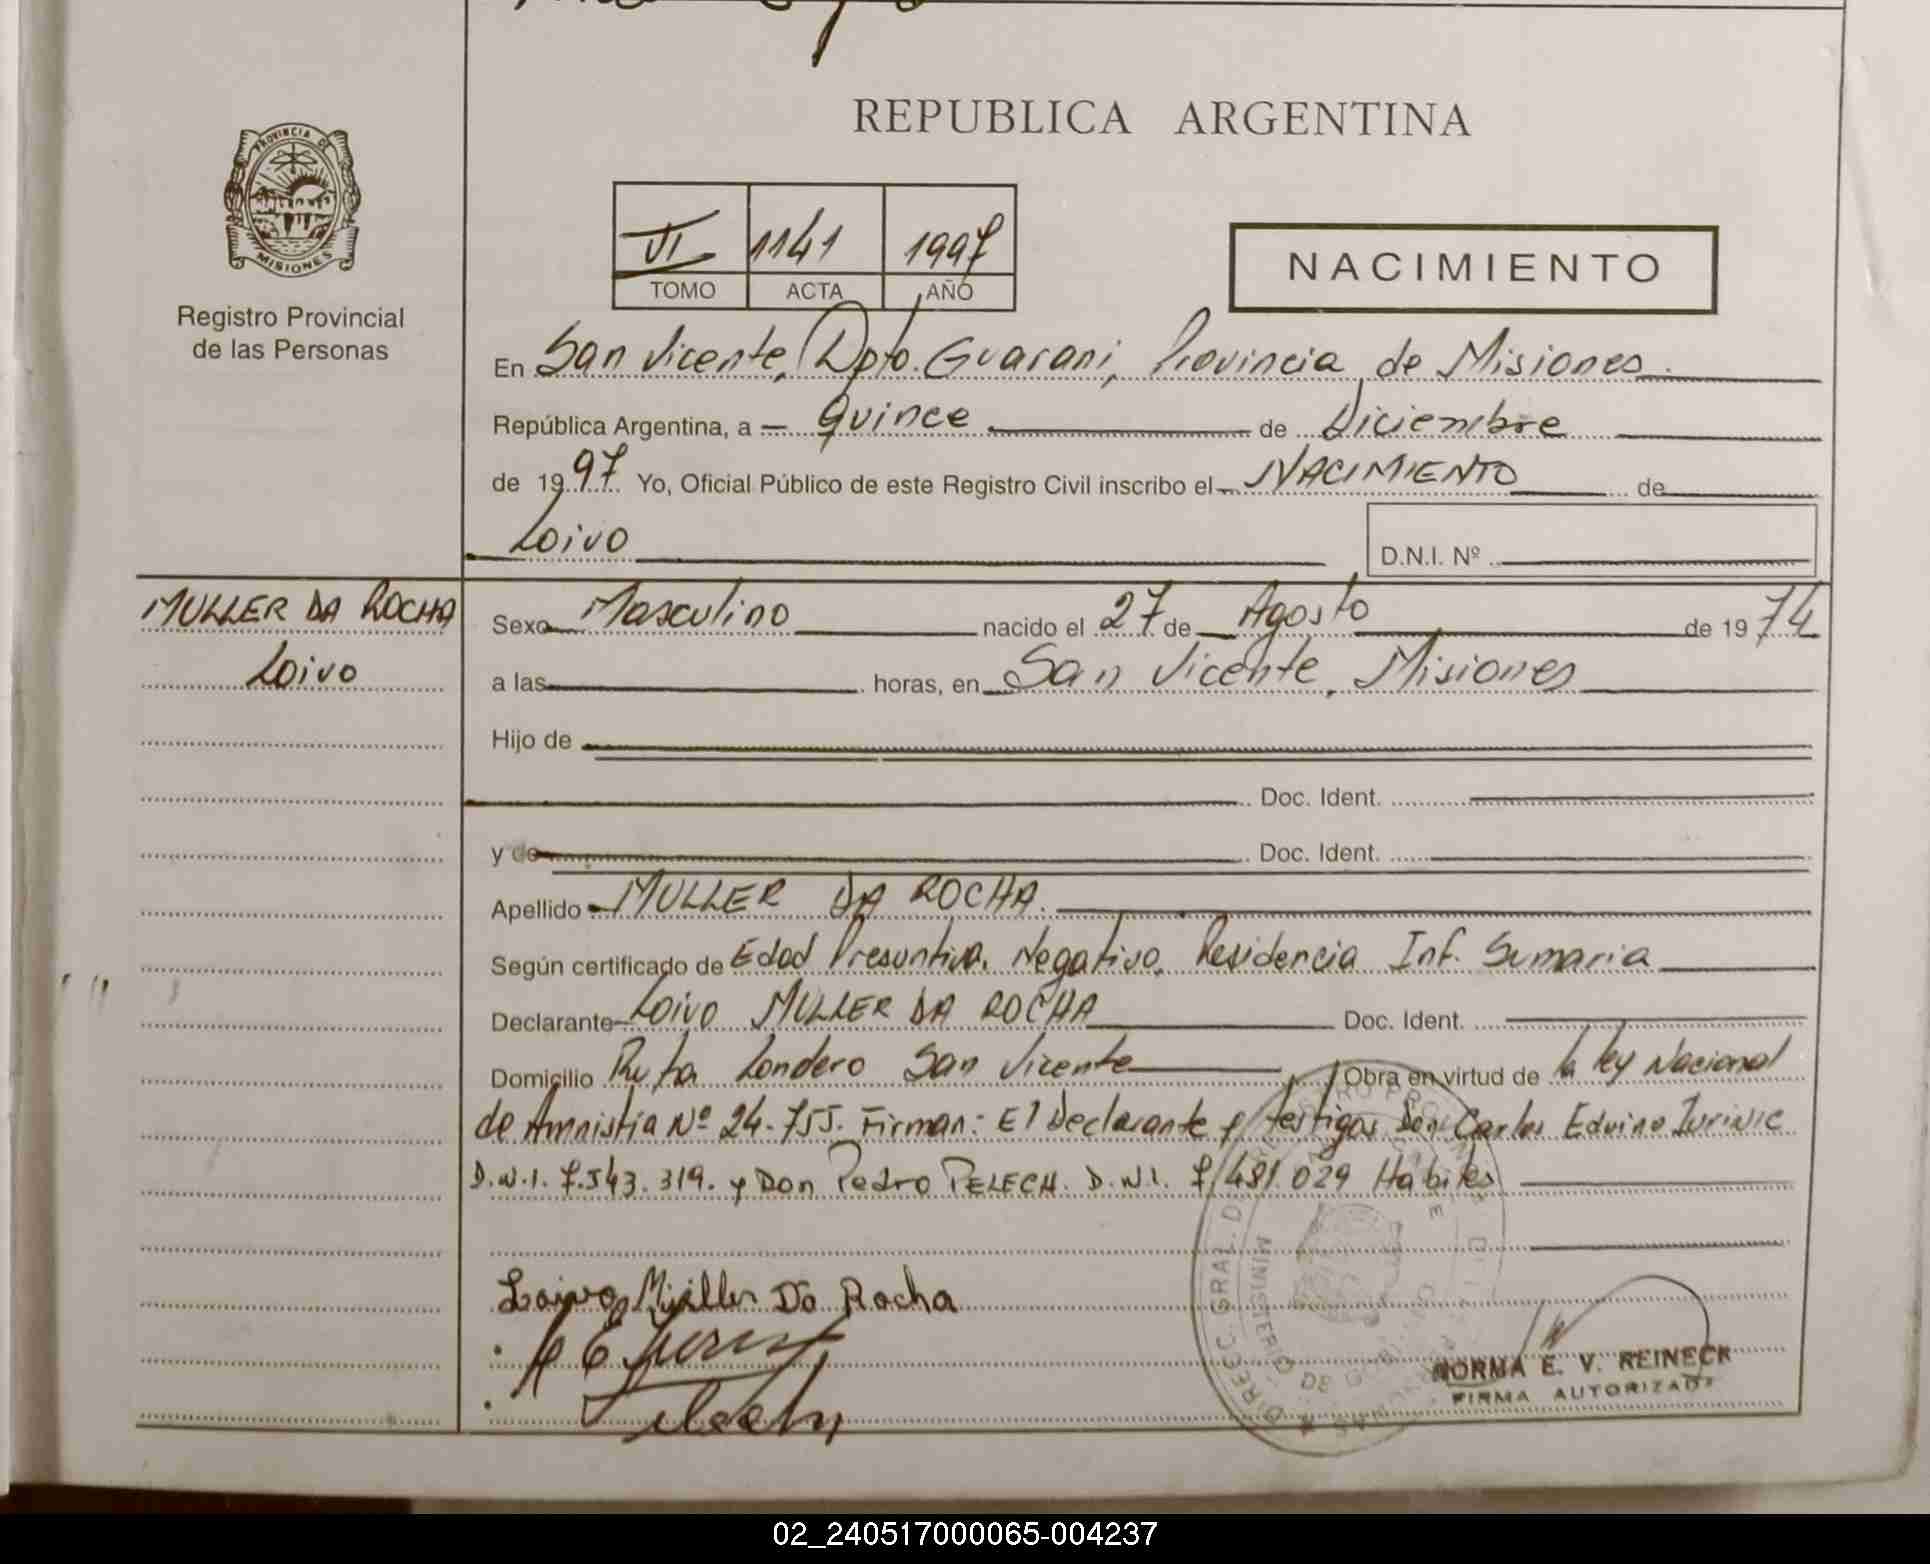 REPUBLICA ARGENTINA
PROVINCIA DE
MISIONES
Registro Provincial
de las Personas
VI 1141 1997
TOMO ACTA AÑO
NACIMIENTO
En San Vicente, Dpto. Guarani, Provincia de Misiones
República Argentina, a quince de Diciembre
de 1997 Yo, Oficial Público de este Registro Civil inscribo el NACIMIENTO de
Loivo
D.N.I. Nº
MULLER DA ROCHA
Loivo
Sexo Masculino nacido el 27 de Agosto de 1974
a las horas, en San Vicente, Misiones
Hijo de
Doc. Ident.
y de Doc. Ident.
Apellido MULLER DA ROCHA.
Según certificado de Edad Presuntiva, Negativo, Residencia Inf. Sumaria
Declarante Loivo MULLER DA ROCHA Doc. Ident.
Domicilio Ruta Londero San Vicente Obra en virtud de la ley Nacional
de Amnistia Nº 24.755. Firman: El Declarante y testigos Don Carlos Edvino
D.N.I. 7.543.319. y Don Pedro PELECH. D.N.I. 7.481.029 Habiles
Loivo Müller Da Rocha
DIREC. GRAL. D
MINISTERIO DE
NORMA E. V. REINECK
FIRMA AUTORIZADA
02_240517000065-004237